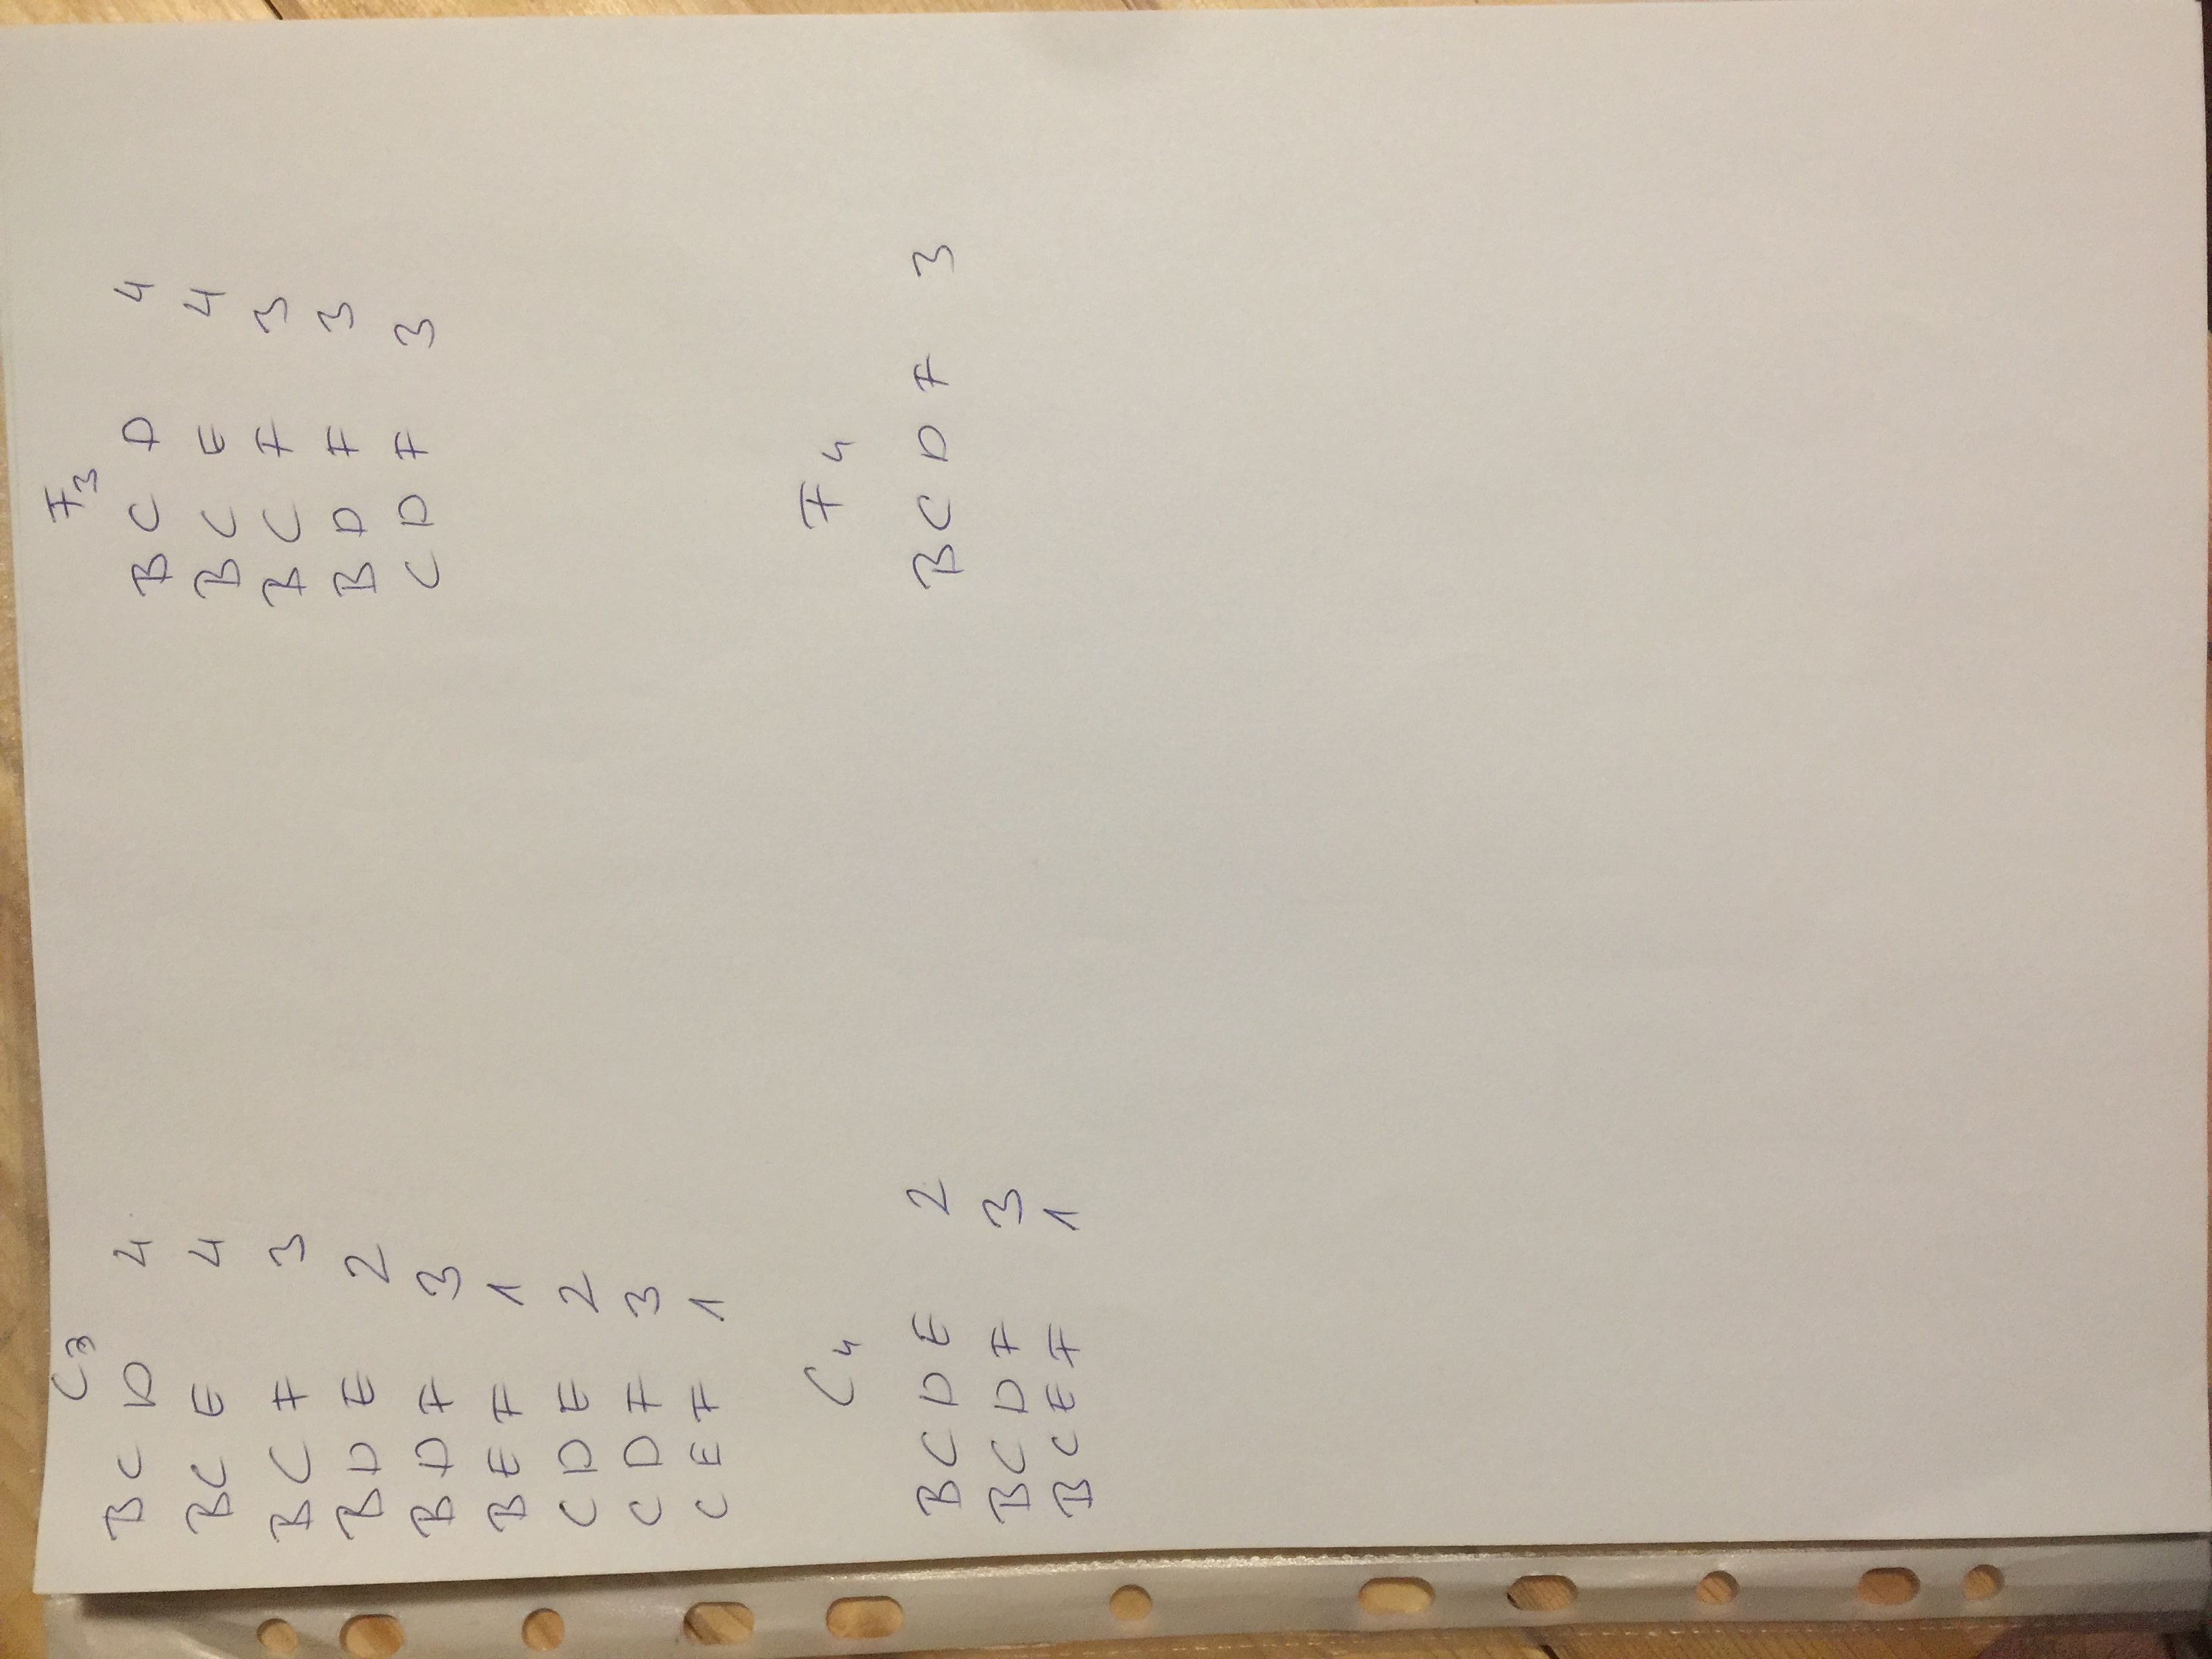 C3
BCD 4
BCE 4
BCF 3
BDE 2
BDF 3
BEF 1
CDE 2
CDF 3
CEF 1
F3
BCD 4
BCE 4
BCF 3
BDF 3
CDF 3
C4
BCDE 2
BCDF 3
BCEF 1
F4
BCDF 3